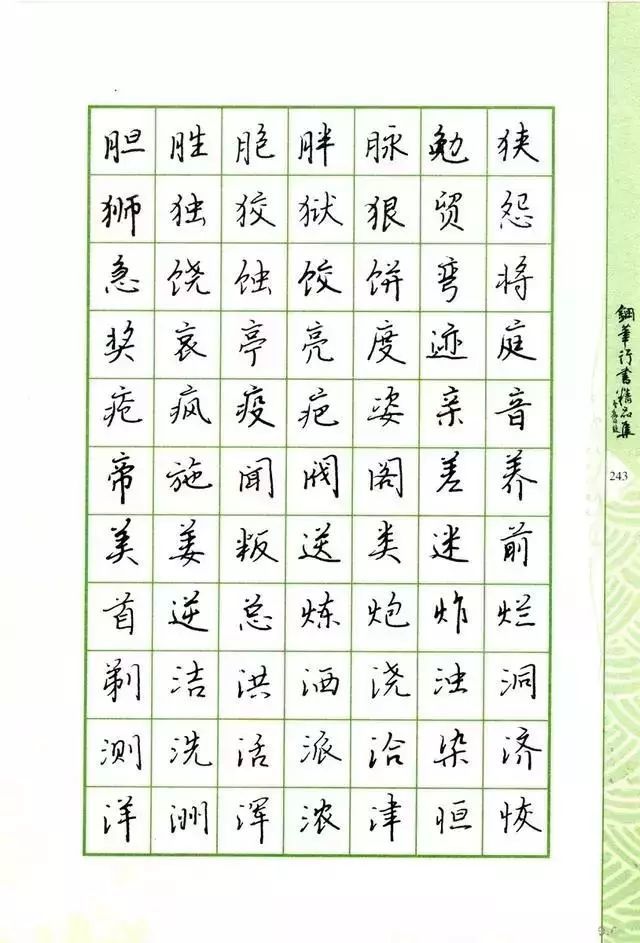 胆胜胞胖脉勉狭
狮独狡狱狠贸怨
急饶蚀饺饼弯将
奖哀亭亮度迹庭
疮疯疫疤姿亲音
帝施闻阀阁差养
美姜叛送类迷前
首逆总炼炮炸烂
剃洁洪洒浇浊洞
测洗活派洽染济
洋洲浑浓津恒恢
鋼筆行書精品集
243